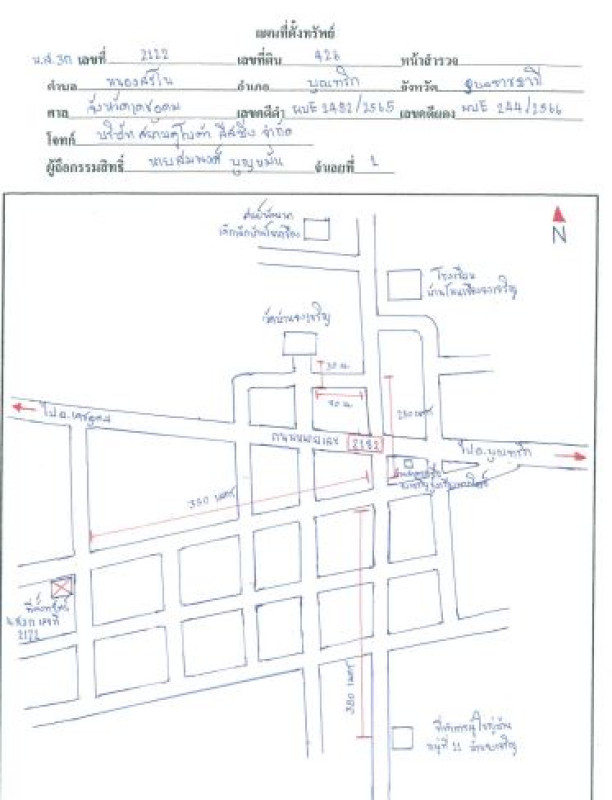 แผนที่ตั้งทรัพย์
น.ส.3ก เลขที่ 2122 เลขที่ดิน 426 หน้าสำรวจ
ตำบล หนองสะโน อำเภอ บุณฑริก จังหวัด อุบลราชธานี
ศาล จังหวัดเดชอุดม เลขคดีดำ ผบE 2482/2565 เลขคดีแดง ผบE 244/2566
โจทก์ บริษัท สยามคูโบต้า ลีสซิ่ง จำกัด
ผู้ถือกรรมสิทธิ์ นายสมพงศ์ บุญขมั้น จำเลยที่ 1
ศูนย์พัฒนา
N
โรงเรียน
วัดบ้านจงเจริญ
30 ม.
90 ม.
250 เมตร
ไป อ.เดชอุดม
ถนนหมายเลข 2182
ไป อ.บุณฑริก
350 เมตร
ที่ตั้งทรัพย์
น.ส.3ก เลขที่
2122
380 เมตร
ที่ทำการผู้ใหญ่บ้าน
หมู่ที่ 11